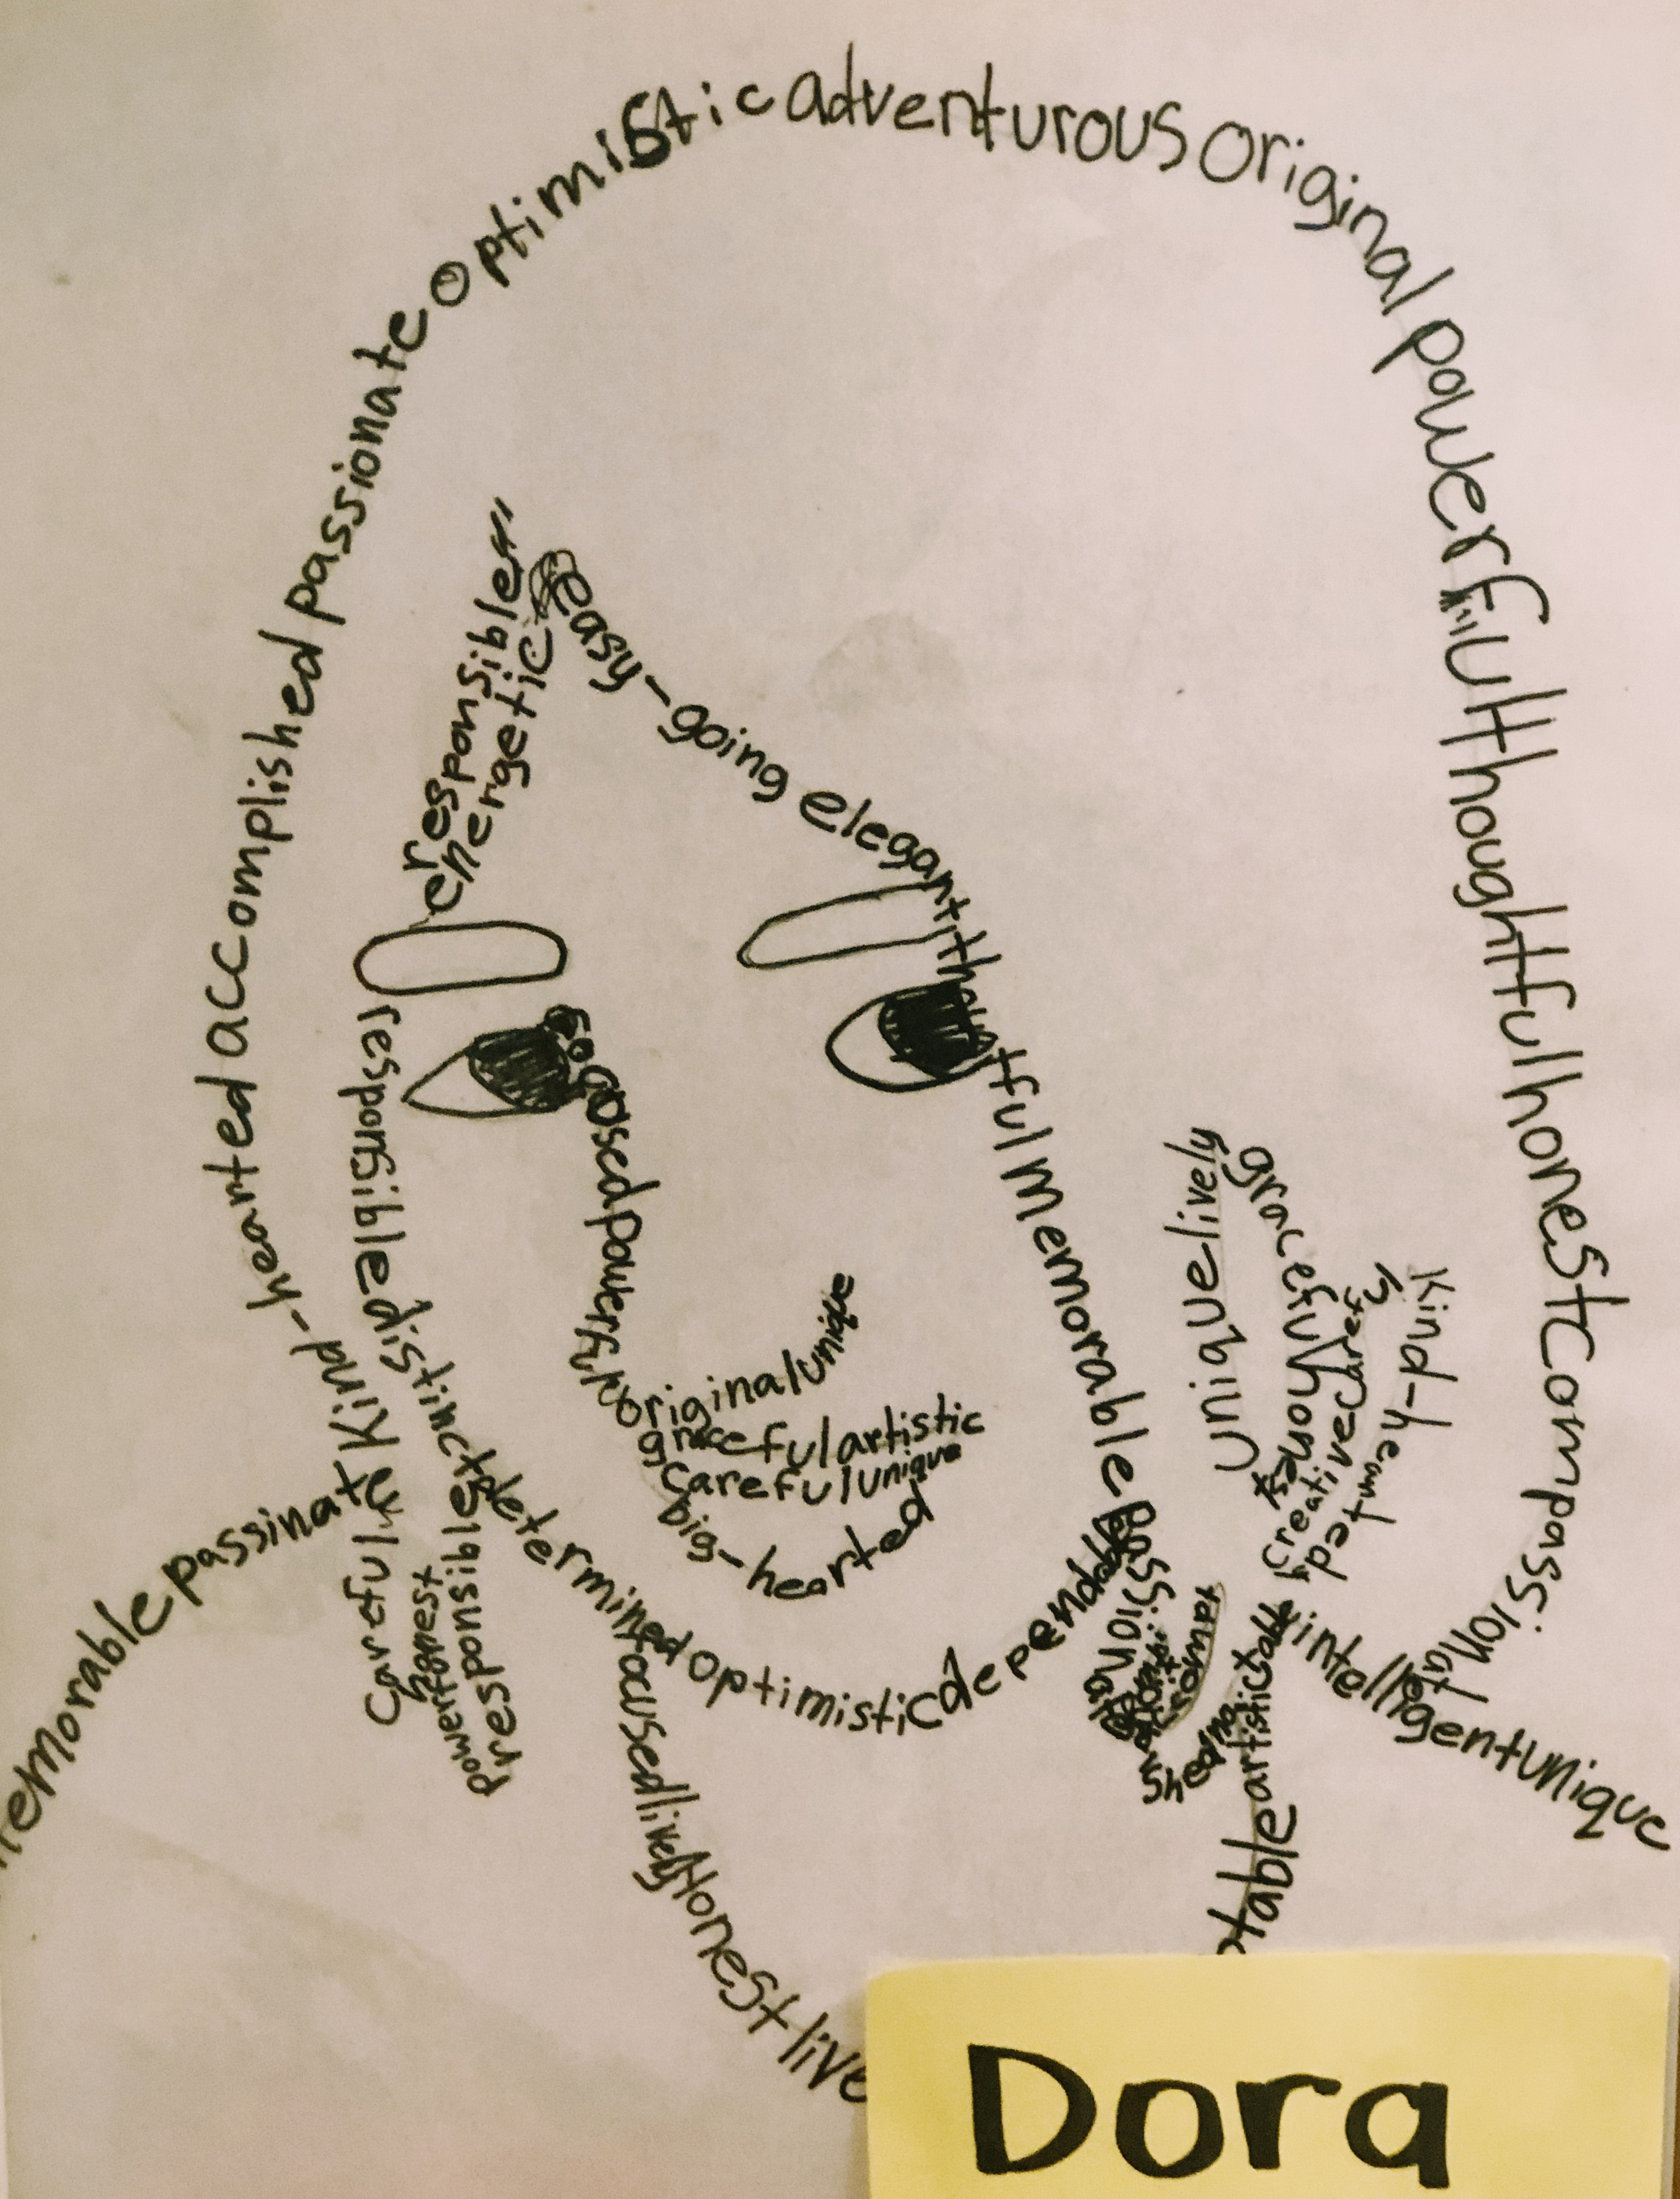 Kind-hearted accomplished passionate optimistic adventurous original powerful thoughtful honest Compassionate
responsible
energetic
easy-going elegant thoughtful memorable passionate
responsible
original unique
graceful artistic
careful unique
big-hearted
unique lively
Honest
creative Caref
Kind-hearted
memorable passinat
Kind
Careful
honest
powerful
responsible
determined optimistic dependable
focused lively Honest live
intelligent unique
artistic
table
Dora